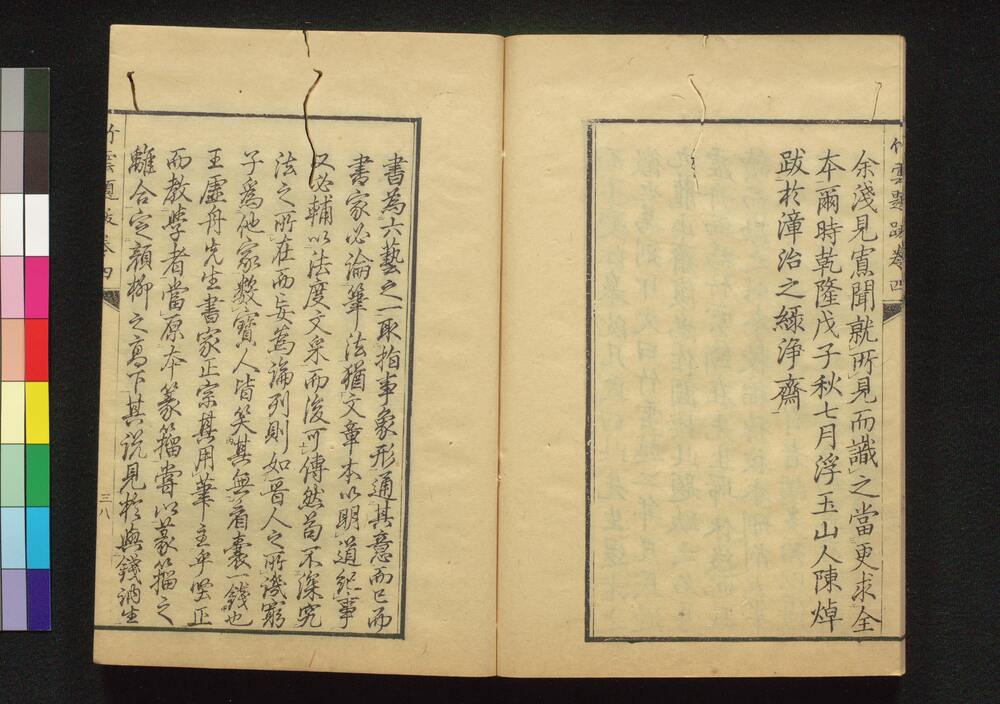 竹雲題跋卷四
余淺見寡聞就所見而識之當更求全
本爾時乾隆戊子秋七月浮玉山人陳焯
跋於漳治之綠淨齋
書為六藝之一取指事象形通其意而已而
書家必論筆法猶文章本以明道紀事
又必輔以法度文采而後可傳然苟不深究
法之所在而妄為論列則如晉人之所譏窮
子為他家數寶人皆笑其無看囊一錢也
王虛舟先生書家正宗其用筆主乎堅正
而教學者當原本篆籀嘗以篆籀之
離合定顏柳之高下其說見於與錢訥生
竹雲題跋卷四
三八